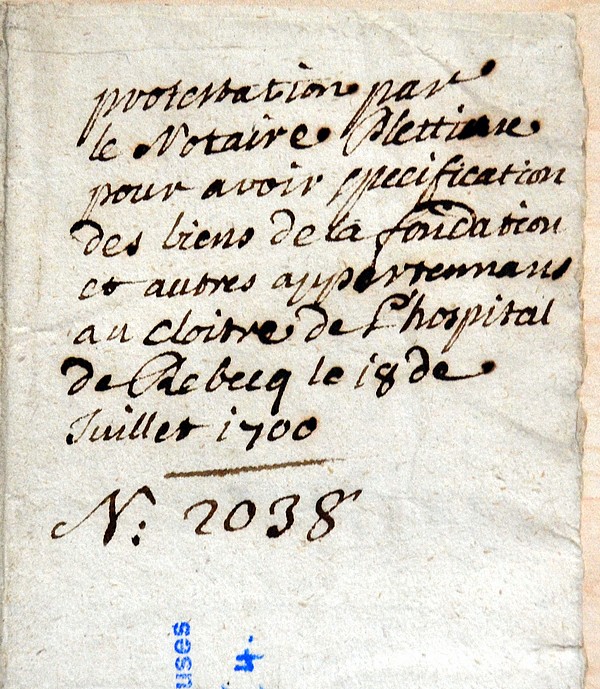 protestation par
le Notaire
pour avoir specification
des biens de la fondation
et autres appertennans
au cloitre de L'hospital
de Rebecq le 18 de
Juillet 1700
N: 2038
uses
4.